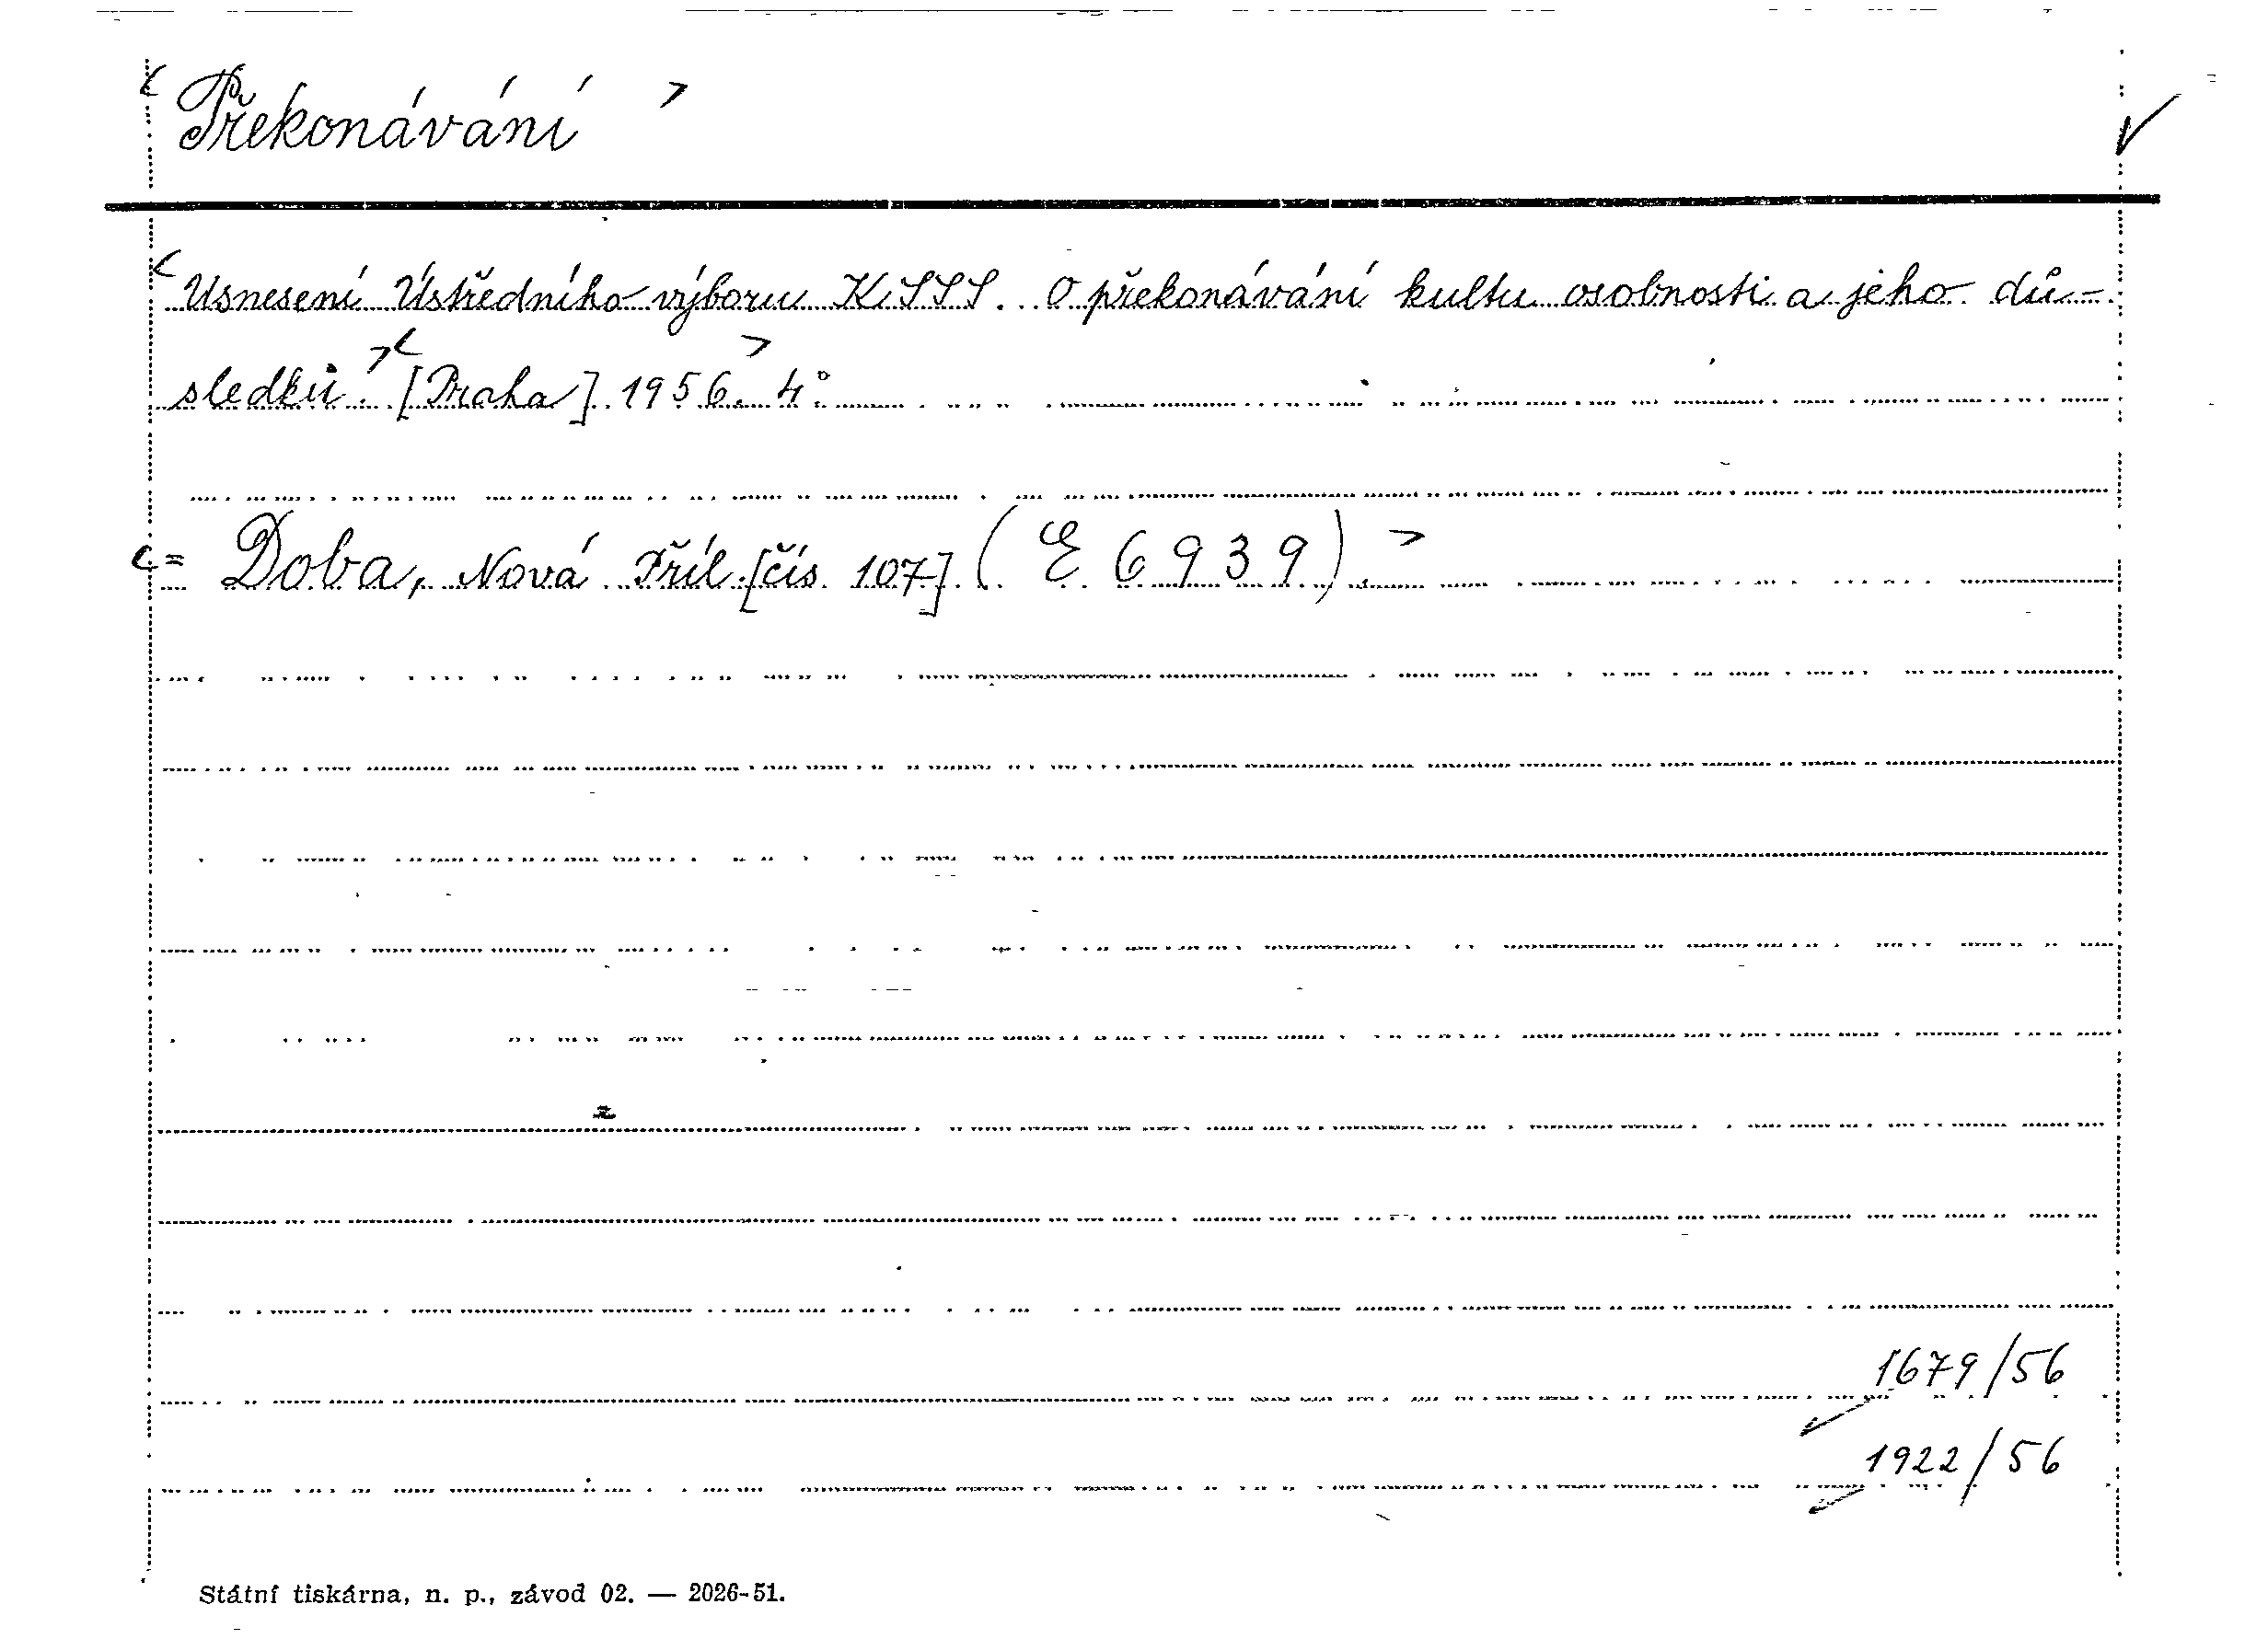 < Překonávání >
< Usnesení Ústředního výboru KSSS. O překonávání kultu osobnosti a jeho dů-
sledků. > < [Praha] 1956. > 4°
< = Doba, Nová Příl. [čís. 107] ( E 6939). >
1679/56
1922/56
Státní tiskárna, n. p., závod 02. — 2026-51.